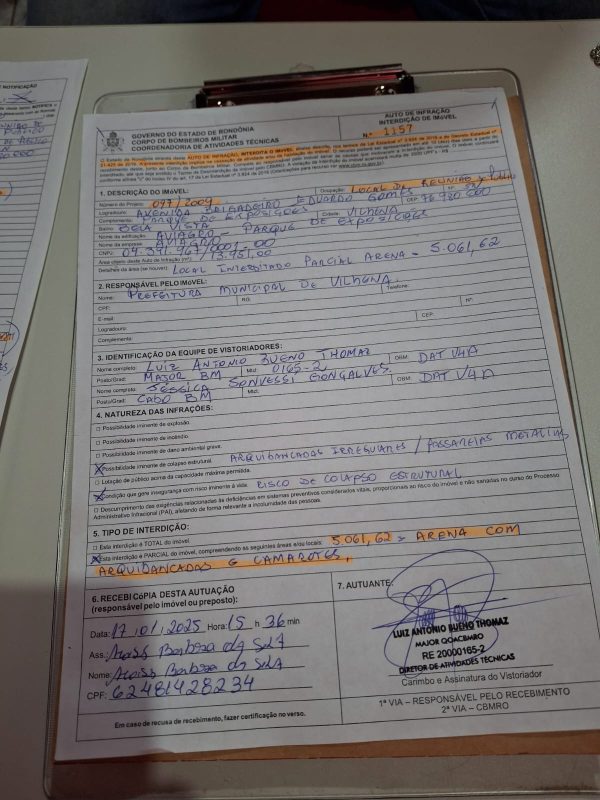 GOVERNO DO ESTADO DE RONDÔNIA
CORPO DE BOMBEIROS MILITAR
COORDENADORIA DE ATIVIDADES TÉCNICAS
AUTO DE INFRAÇÃO
INTERDIÇÃO DE IMÓVEL
N.º 1157
1. DESCRIÇÃO DO IMÓVEL:
Número do Projeto: 097/2009 Ocupação: LOCAL DE REUNIÃO
Logradouro: AVENIDA BRIGADEIRO EDUARDO GOMES Nº:
Complemento: PARQUE DE EXPOSIÇÕES CEP: 76 980 000
Bairro: BELA VISTA Cidade: VILHENA
Nome da edificação: AVIAGRO - PARQUE DE EXPOSIÇÕES
Nome da empresa: AVIAGRO
CNPJ: 04.391.967/0001-00
Área objeto deste Auto de Infração (m²): 13.951,00
Detalhes da área (se houver): LOCAL INTERDITADO PARCIAL ARENA = 5.061,62
2. RESPONSÁVEL PELO IMÓVEL:
Nome: PREFEITURA MUNICIPAL DE VILHENA. Telefone:
CPF: RG:
E-mail:
Logradouro: Nº:
Complemento: CEP:
3. IDENTIFICAÇÃO DA EQUIPE DE VISTORIADORES:
Nome completo: LUIZ ANTONIO BUENO THOMAZ
Posto/Grad: MAJOR BM Mtcl: 0165-2 OBM: DAT VHA
Nome completo: JÉSSICA GONÇALVES
Posto/Grad: CABO BM Mtcl: OBM: DAT VHA
4. NATUREZA DAS INFRAÇÕES:
Possibilidade iminente de explosão.
Possibilidade iminente de incêndio.
Possibilidade iminente de dano ambiental grave.
X Possibilidade iminente de colapso estrutural. ARQUIBANCADAS IRREGULARES / PASSARELAS METALICAS
Lotação de público acima da capacidade máxima permitida.
X Condição que gere insegurança com risco iminente à vida. RISCO DE COLAPSO ESTRUTURAL
Descumprimento das exigências relacionadas às deficiências em sistemas preventivos considerados vitais, proporcionais ao risco do imóvel e não sanadas no curso do Processo
Administrativo Infracional (PAI), afetando de forma relevante a incolumidade das pessoas.
5. TIPO DE INTERDIÇÃO:
Esta interdição é TOTAL do imóvel.
X Esta interdição é PARCIAL do imóvel, compreendendo as seguintes áreas e/ou locais: 5.061,62 > ARENA COM
ARQUIBANCADAS E CAMAROTES.
6. RECEBI CÓPIA DESTA AUTUAÇÃO
(responsável pelo imóvel ou preposto):
7. AUTUANTE:
Data: 17/01/2025 Hora: 15 h 36 min
Ass.: Moiss Barbosa da Silva
Nome: Moiss Barbosa da Silva
CPF: 62481428234
Em caso de recusa de recebimento, fazer certificação no verso.
LUIZ ANTONIO BUENO THOMAZ
MAJOR QOACBMRO
RE 20000165-2
DIRETOR DE ATIVIDADES TÉCNICAS
Carimbo e Assinatura do Vistoriador
1ª VIA – RESPONSÁVEL PELO RECEBIMENTO
2ª VIA – CBMRO